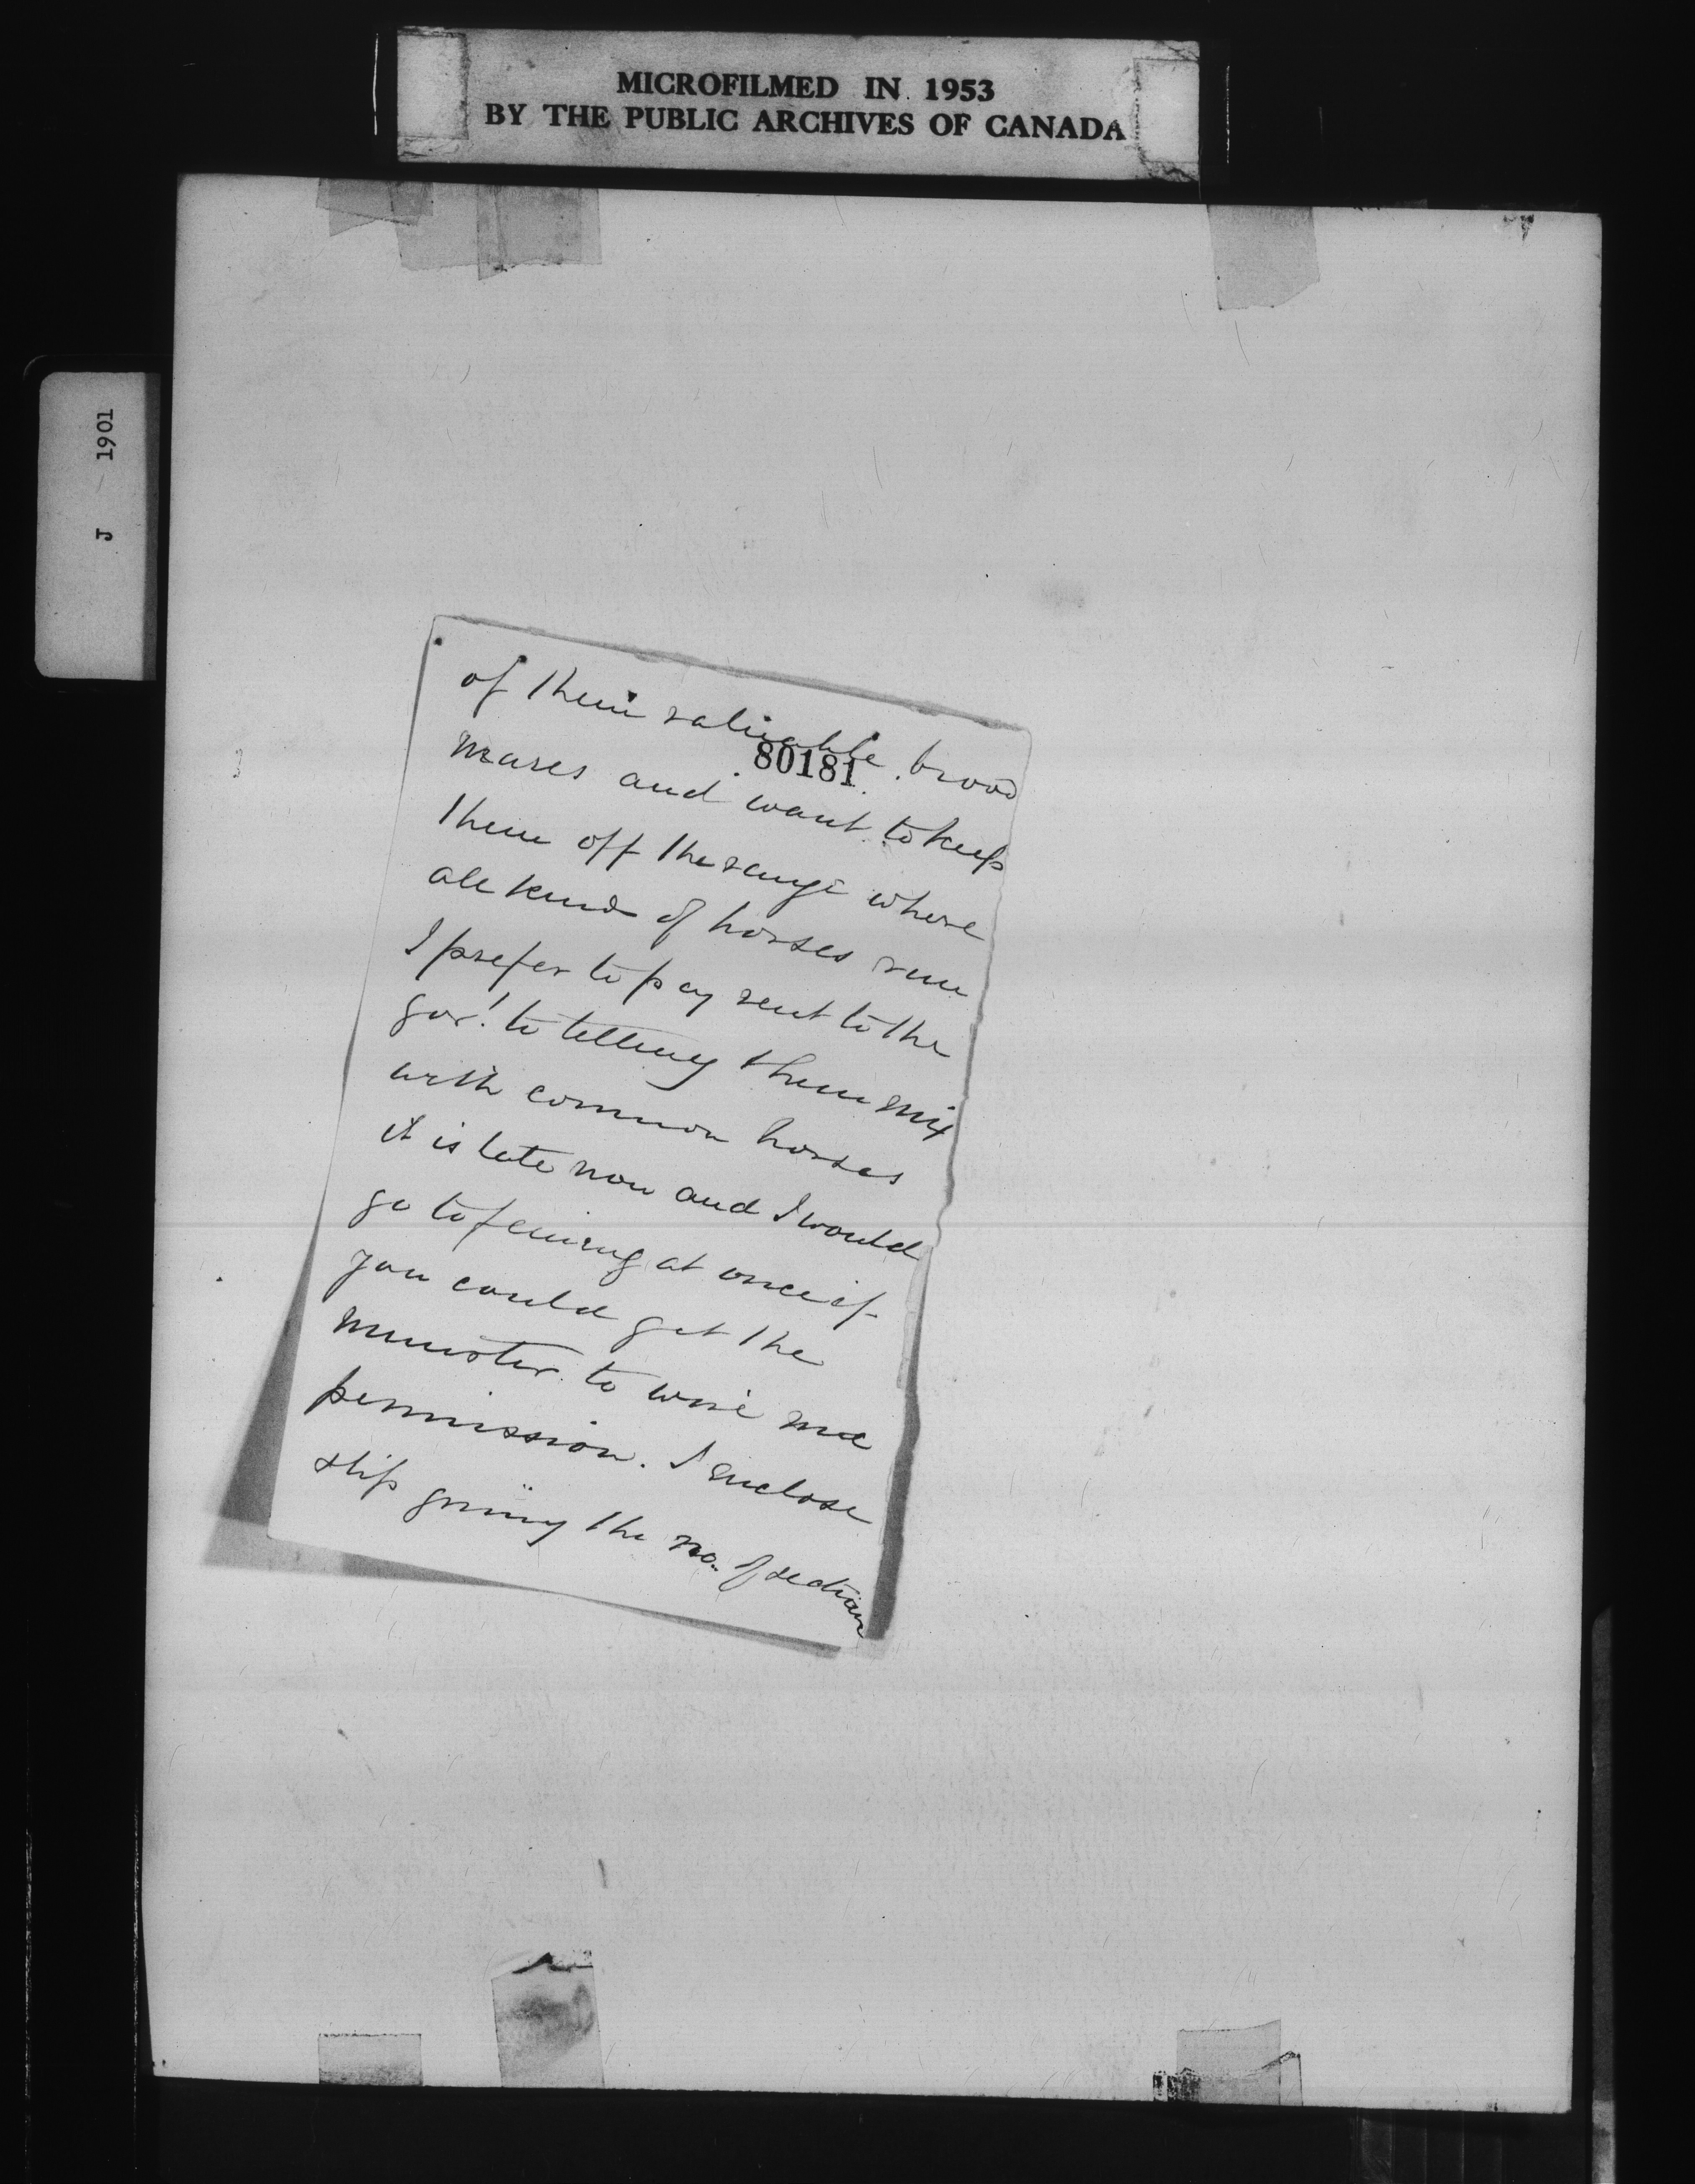 MICROFILMED IN 1953
BY THE PUBLIC ARCHIVES OF CANADA
J - 1901
of them valuable brood
80181
mares and want to keep
them off the range where
all kinds of horses run
I prefer to pay rent to the
gov't to telling them mix
with common horses
it is late now and I would
go to fencing at once if
you could get the
Minister to wire me
permission. I enclose
slip giving the no. of section